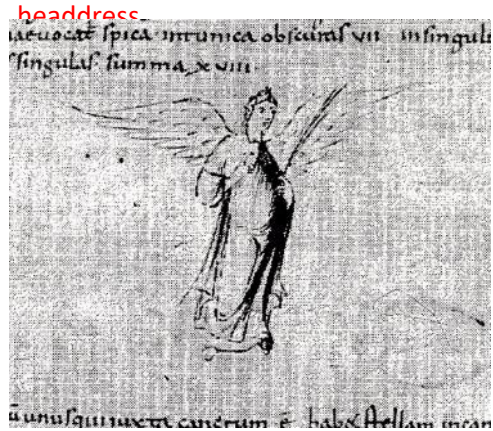 headdress.
uocat spica intunica obscuras vii insingul
singulas summa xviii.
unusqui iuxta cancrum ē habet stellam incan